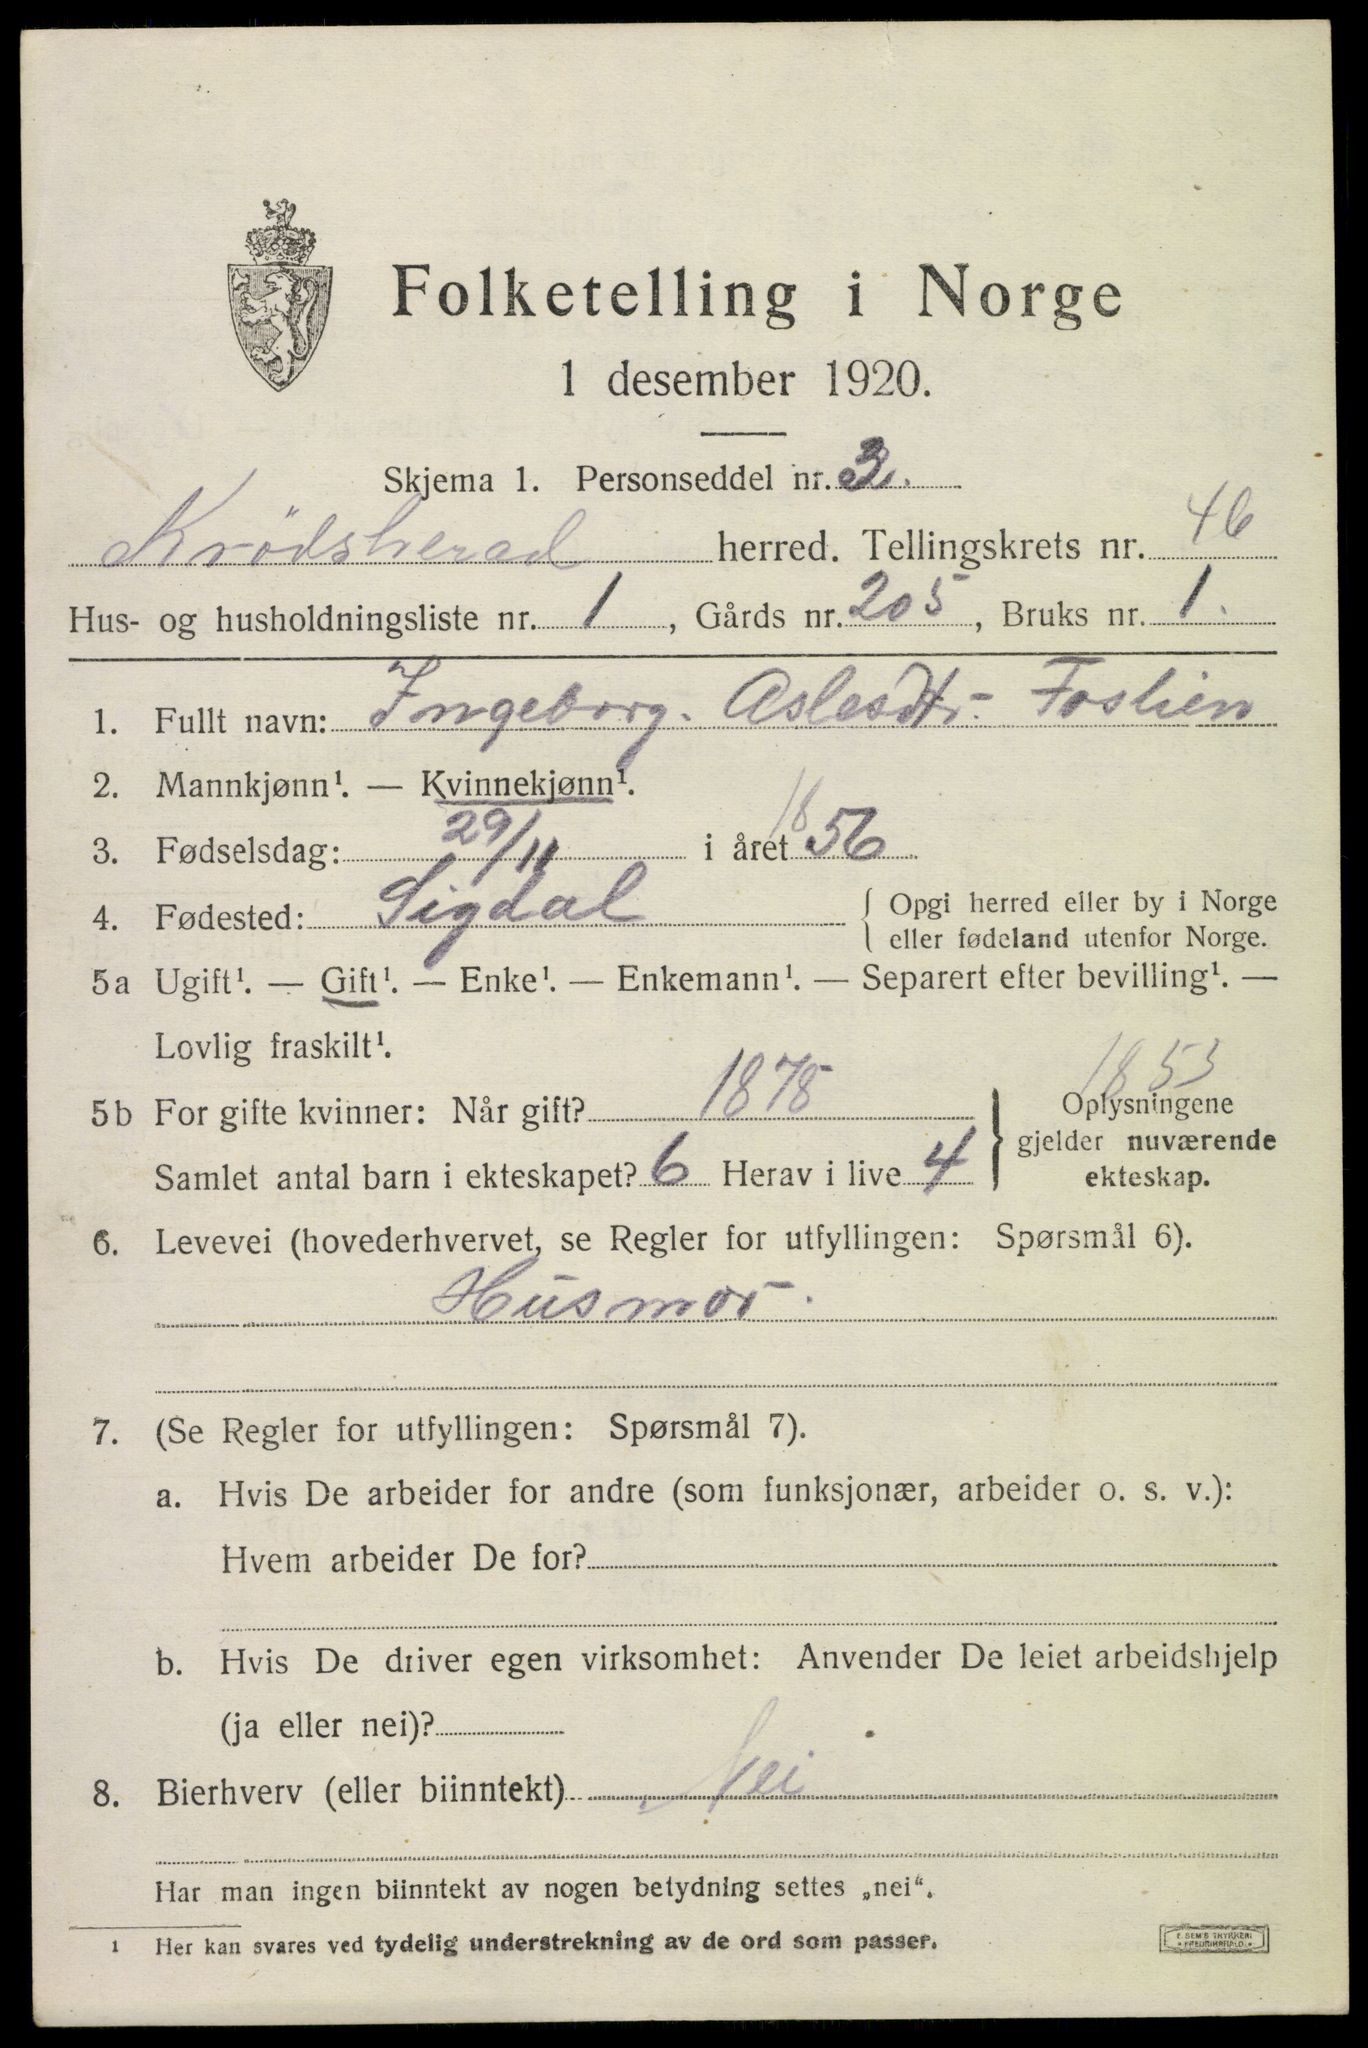 Folketelling i Norge
1 desember 1920.
Skjema 1. Personseddel nr. 3.
Krödsherad herred. Tellingskrets nr. 46
Hus- og husholdningsliste nr. 1, Gårds nr. 205, Bruks nr. 1.
1. Fullt navn: Ingeborg. Aslesdtr. Foslien
2. Mannkjønn¹. — Kvinnekjønn¹.
3. Fødselsdag: 29/11 i året 1856
4. Fødested: Sigdal { Opgi herred eller by i Norge
eller fødeland utenfor Norge.
5a Ugift¹. — Gift¹. — Enke¹. — Enkemann¹. — Separert efter bevilling¹. —
Lovlig fraskilt¹.
1853
5b For gifte kvinner: Når gift? 1878 } Oplysningene
gjelder nuværende
Samlet antal barn i ekteskapet? 6 Herav i live 4 ekteskap.
6. Levevei (hovederhvervet, se Regler for utfyllingen: Spørsmål 6).
Husmor.
7. (Se Regler for utfyllingen: Spørsmål 7).
a. Hvis De arbeider for andre (som funksjonær, arbeider o. s. v.):
Hvem arbeider De for?
b. Hvis De driver egen virksomhet: Anvender De leiet arbeidshjelp
(ja eller nei)?
8. Bierhverv (eller biinntekt) Nei
Har man ingen biinntekt av nogen betydning settes „nei“.
1 Her kan svares ved tydelig understrekning av de ord som passer.
E. SEM'S TRYKKERI
FREDRIKSHALD